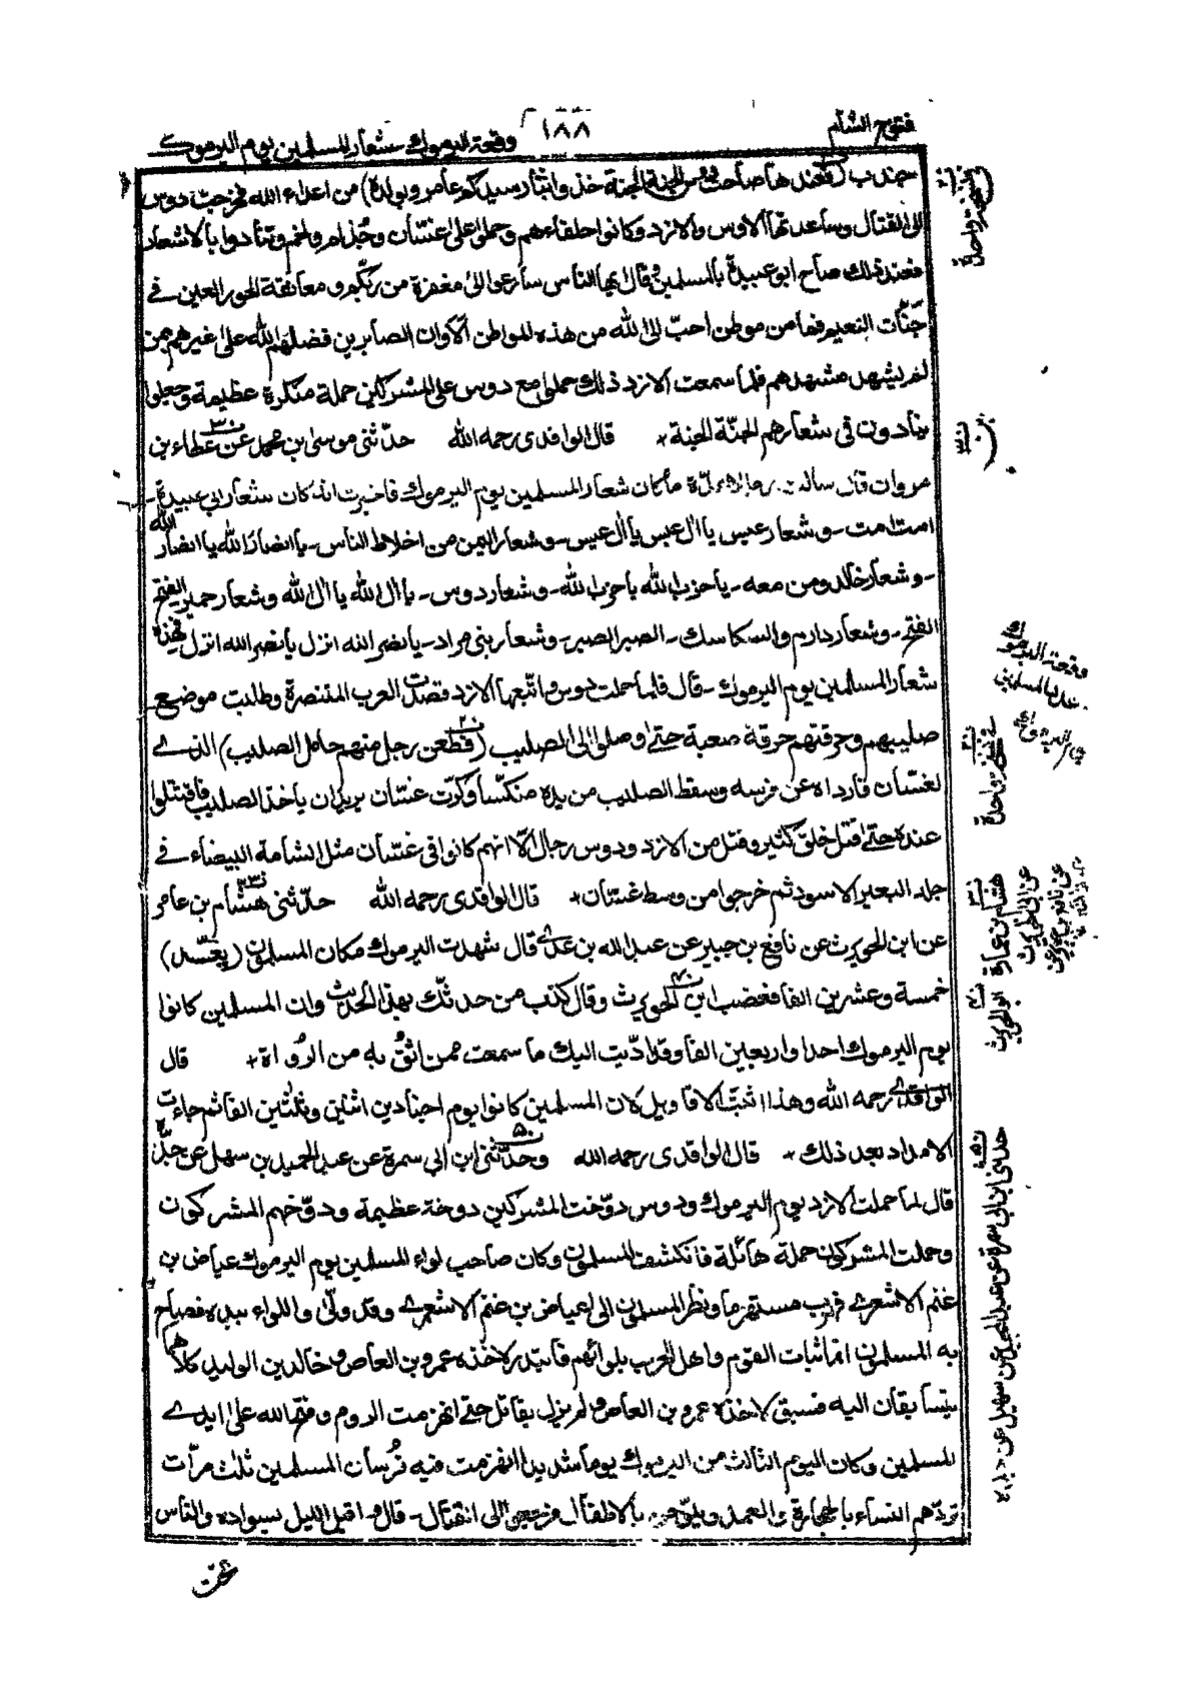 فتوح الشام
١٨٨
وقعة اليرموك شعار المسلمين يوم اليرموك
جندب (فعندها صاحت دوس الجنة الجنة خذوا بثأر سيدكم عامر وبولده) من اعداء الله فخرجت دوس
الى القتال وساعدتها الاوس والازد وكانوا حلفاءهم وحملوا على غسّان وجُذام ولخم وتنادوا بالاشعار
فعند ذلك صاح ابو عبيدة بالمسلمين وقال ايها الناس سارعوا الى مغفرة من ربّكم ومعانقة الحور العين في
جنّات النعيم فما من موطن احبّ الى الله من هذه المواطن ألا وان الصابرين فضلهم الله على غيرهم ممن
لم يشهد مشهدهم فلما سمعت الازد ذلك حملوا مع دوس على المشركين حملة منكرة عظيمة وجعلوا
ينادون في شعارهم الجنّة الجنة * قال الواقدى رحمه الله حدّثنى موسى بن محمد عن عطاء بن
مروان قال سألت ما كان شعار المسلمين يوم اليرموك فاخبرت انه كان شعار ابي عبيدة -
امت امت - وشعار عبس يا ال عبس يا ال عبس - وشعار اليمن من اخلاط الناس - يا انصار الله يا انصار الله
- وشعار خالد ومن معه - يا حزب الله يا حزب الله - وشعار دوس - يا ال الله يا ال الله وشعار حمير الفتح
الفتح - وشعار دارم والسكاسك - الصبر الصبر - وشعار بنى مراد - يا نصر الله انزل يا نصر الله انزل فهذه
شعار المسلمين يوم اليرموك - قال فلما حملت دوس واتبعها الازد قصدت العرب المتنصرة وطلبت موضع
صليبهم وحرقتهم حرقة صعبة حتى وصلوا الى الصليب (فطعن رجل منهم حامل الصليب) الذى
لغسّان فارداه عن فرسه وسقط الصليب من يده منكّسا وكرّت غسّان يريدان ياخذ الصليب فاقتتلوا
عنده حتى قتل خلق كثير وقتل من الازد ودوس رجال الّا انهم كانوا في غسّان مثل الشامة البيضاء في
جلد البعير الاسود ثم خرجوا من وسط غسّان * قال الواقدى رحمه الله حدّثنى هشام بن عامر
عن ابن الحويرث عن نافع بن جبير عن عبد الله بن عدى قال شهدت اليرموك مكان المسلمون (يعسّد)
خمسة وعشرين الفا فغضب ابن الحويرث وقال كذب من حدثك بهذا الحديث وان المسلمين كانوا
يوم اليرموك احدا واربعين الفا وقد ادّيت اليك ما سمعت ممن اثق به من الرُواة * قال
الواقدى رحمه الله وهذا اثبت الاقاويل لان المسلمين كانوا يوم اجنادين اثنين وثلثين الفا ثم جاءت
الامداد بعد ذلك * قال الواقدى رحمه الله وحدّثنى ابن ابي سمرة عن عبد الحميد بن سهل عن جدّه
قال لما حملت الازد يوم اليرموك ودوس دوّخت المشركين دوخة عظيمة ودوّخهم المشركون
وحملت المشركون حملة هائلة فانكشف المسلمون وكان صاحب لواء المسلمين يوم اليرموك عياض بن
غنم الاشعرى فهرب مستهزما ونظر المسلمون الى عياض بن غنم الاشعرى وقد ولّى واللواء بيده فصاح
به المسلمون انما ثبات القوم واهل الحرب بلوائهم فابتدر لاخذه عمرو بن العاص وخالد بن الوليد كلاهما
يتسابقان اليه فسبق لاخذه عمرو بن العاص ولم يزل يقاتل حتى انهزمت الروم وفتح الله على ايدى
المسلمين وكان اليوم الثالث من اليرموك يوما شديدا انهزمت فيه فُرسان المسلمين ثلث مرّات
تردّهم النساء بالحجارة والعمد ويلوّحن بالاطفال فيرجعون الى القتال - قال واقبل الليل بسواده والناس
نسخة واحدة
وقعة اليرموك
نسخة واحدة
هشام بن عمارة
عن ابى الحويرث
عن نافع بن جبير عن
ابو الحويرث
حدثنى ابن ابى سمرة عن عبد المجيد عن سهيل عن جابر